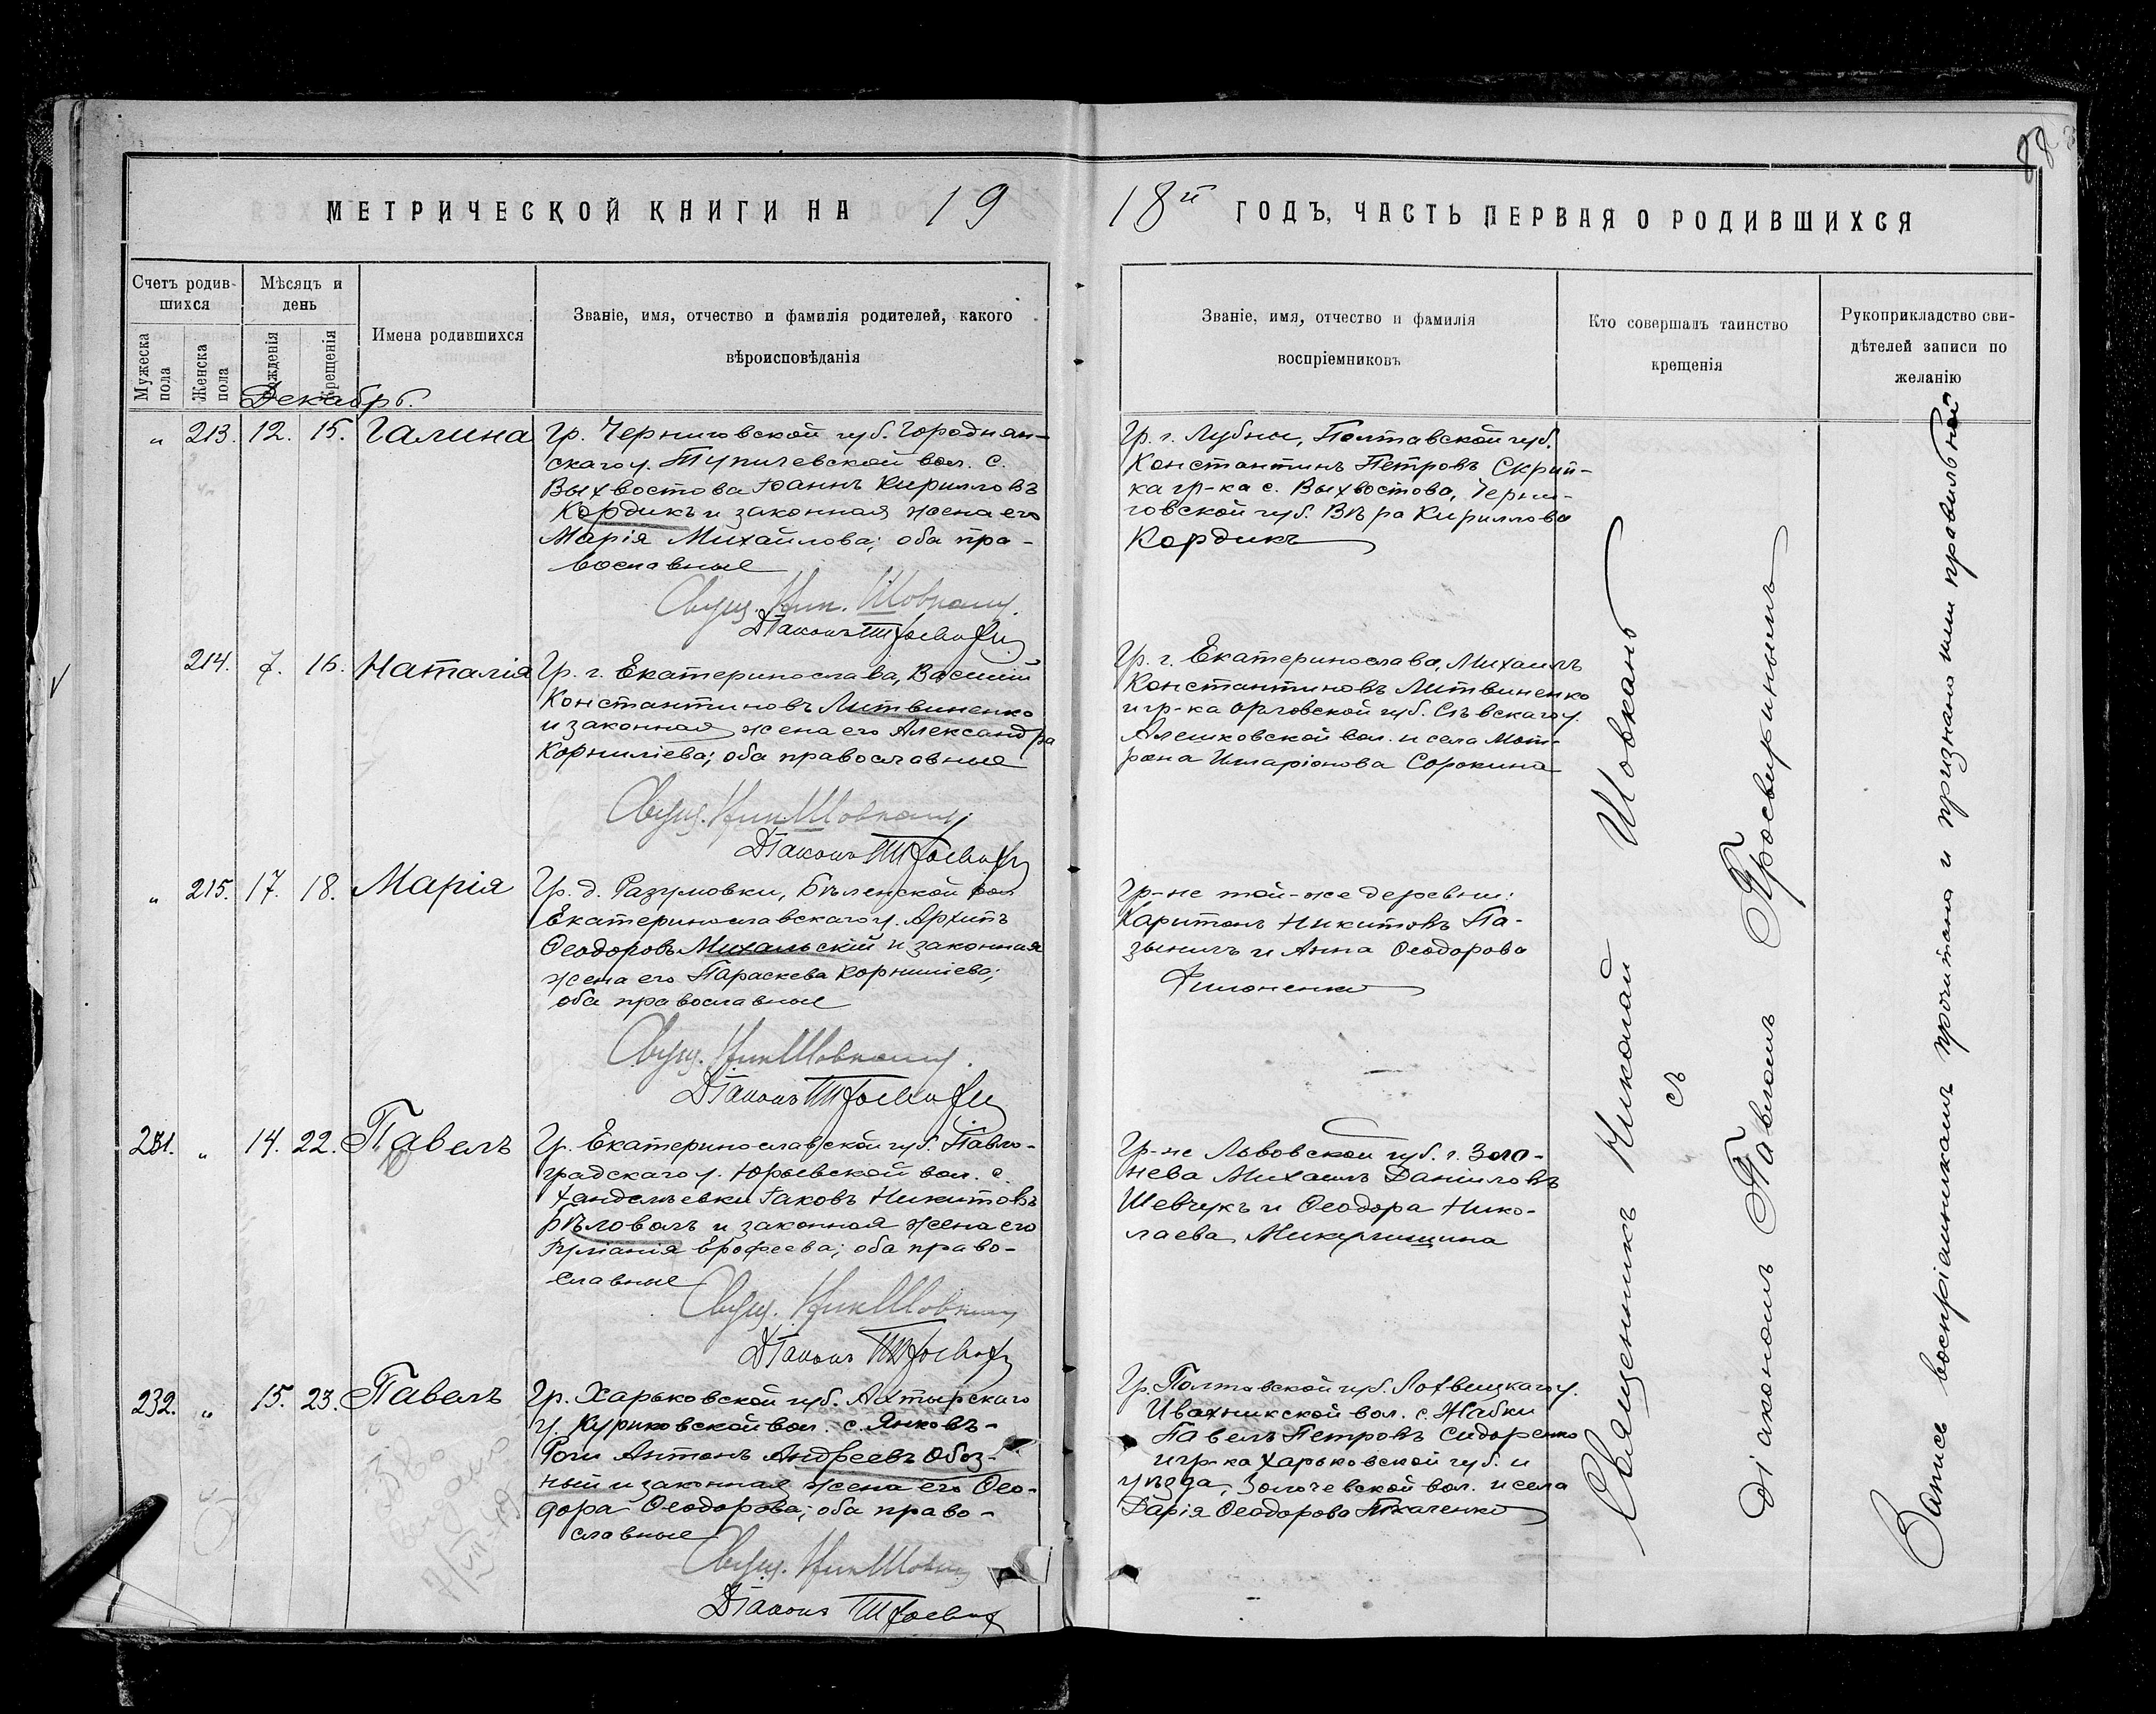 88
МЕТРИЧЕСКОЙ КНИГИ НА 19
18й ГОДЪ, ЧАСТЬ ПЕРВАЯ О РОДИВШИХСЯ
Счетъ родив-
шихся
Мужеска
пола
Женска
пола
Мѣсяцъ и
день
Рожденія
Крещенія
Имена родившихся
Званіе, имя, отчество и фамилія родителей, какого
вѣроисповѣданія
Званіе, имя, отчество и фамилія
воспріемниковъ
Кто совершалъ таинство
крещенія
Рукоприкладство сви-
дѣтелей записи по
желанію
Декабрь.
" 213. 12. 15. Галина
Гр. Черниговской губ. Городнян-
скаго у. Тупичевской вол. с.
Выхвостова Іоаннъ Кирилловъ
Кордикъ и законная жена его
Марія Михайлова; оба пра-
вославные
Свящ. Ник. Шовкань.
Діаконъ
Гр. г. Лубны, Полтавской губ.
Константинъ Петровъ Скрип-
ка гр-ка с. Выхвостова, Черни-
говской губ. Вѣра Кириллова
Кордикъ
214. 7. 16. Наталія
Гр. г. Екатеринослава, Василій
Константиновъ Литвиненко
и законная жена его Александра
Корниліева; оба православные
Свящ. Ник Шовкань
Діаконъ
Гр. г. Екатеринослава, Михаилъ
Константиновъ Литвиненко
и гр-ка Орловской губ. Сѣвскаго у.
Алешковской вол. и села Мат-
рона Иларіонова Сорокина
" 215. 17. 18. Марія
Гр. д. Разумовки, Бѣленской вол.
Екатеринославскаго у. Архипъ
Ѳеодоровъ Михальскій и законная
жена его Параскева Корниліева;
оба православные
Свящ. Ник Шовкань.
Діаконъ
Гр-не той-же деревни:
Харитонъ Никитовъ Па-
и Анна Ѳеодорова
Филоненко
231. " 14. 22. Павелъ
Гр. Екатеринославской губ. Павло-
градскаго у. Юрьевской вол. с.
Іаковъ Никитовъ
Бѣловолъ и законная жена его
Ерофеева; оба право-
славные
Свящ. Ник Шовкань
Діаконъ
Гр-не Львовской губ. г.
Михаилъ Даніиловъ
Шевчукъ и Ѳеодора Нико-
лаева
232. " 15. 23. Павелъ
Гр. Харьковской губ. Ахтырскаго
у. вол. с. Янковъ-
Роги Антонъ Андреевъ Обоз-
ный и законная жена его Ѳео-
дора Ѳеодорова; оба право-
славные
Свящ. Ник Шовкань
Діаконъ
Гр. Полтавской губ. Лохвицкаго у.
Ивахникской вол. с. Жабки
Павелъ Петровъ Сидоренко
и гр-ка Харьковской губ. и
уѣзда, Золочевской вол. и села
Дарія Ѳеодорова Ткаченко
Священникъ Николай Шовкань
съ
діакономъ Павломъ Просвиринымъ
Запись воспріемникамъ прочитана и признана ими правильной